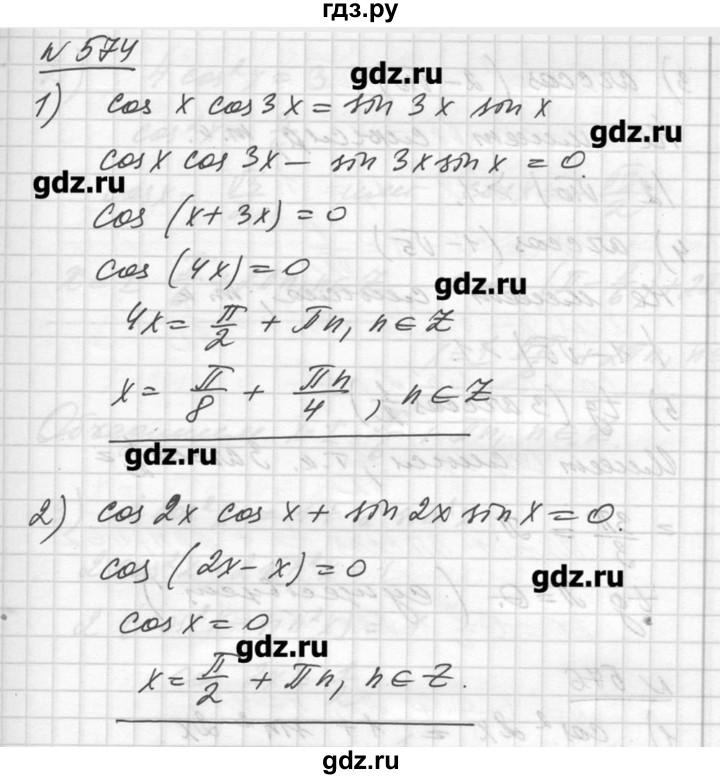 гдз.ру
N 574
gdz.ru
1) cos x cos 3x = sin 3x sin x
gdz.ru
cos x cos 3x - sin 3x sin x = 0.
gdz.ru
cos (x + 3x) = 0
cos (4x) = 0
gdz.ru
4x = π/2 + πn, n ∈ Z
x = π/8 + πn/4, n ∈ Z
gdz.ru
2) cos 2x cos x + sin 2x sin x = 0.
cos (2x - x) = 0
gdz.ru
cos x = 0
gdz.ru
x = π/2 + πn, n ∈ Z.
gdz.ru